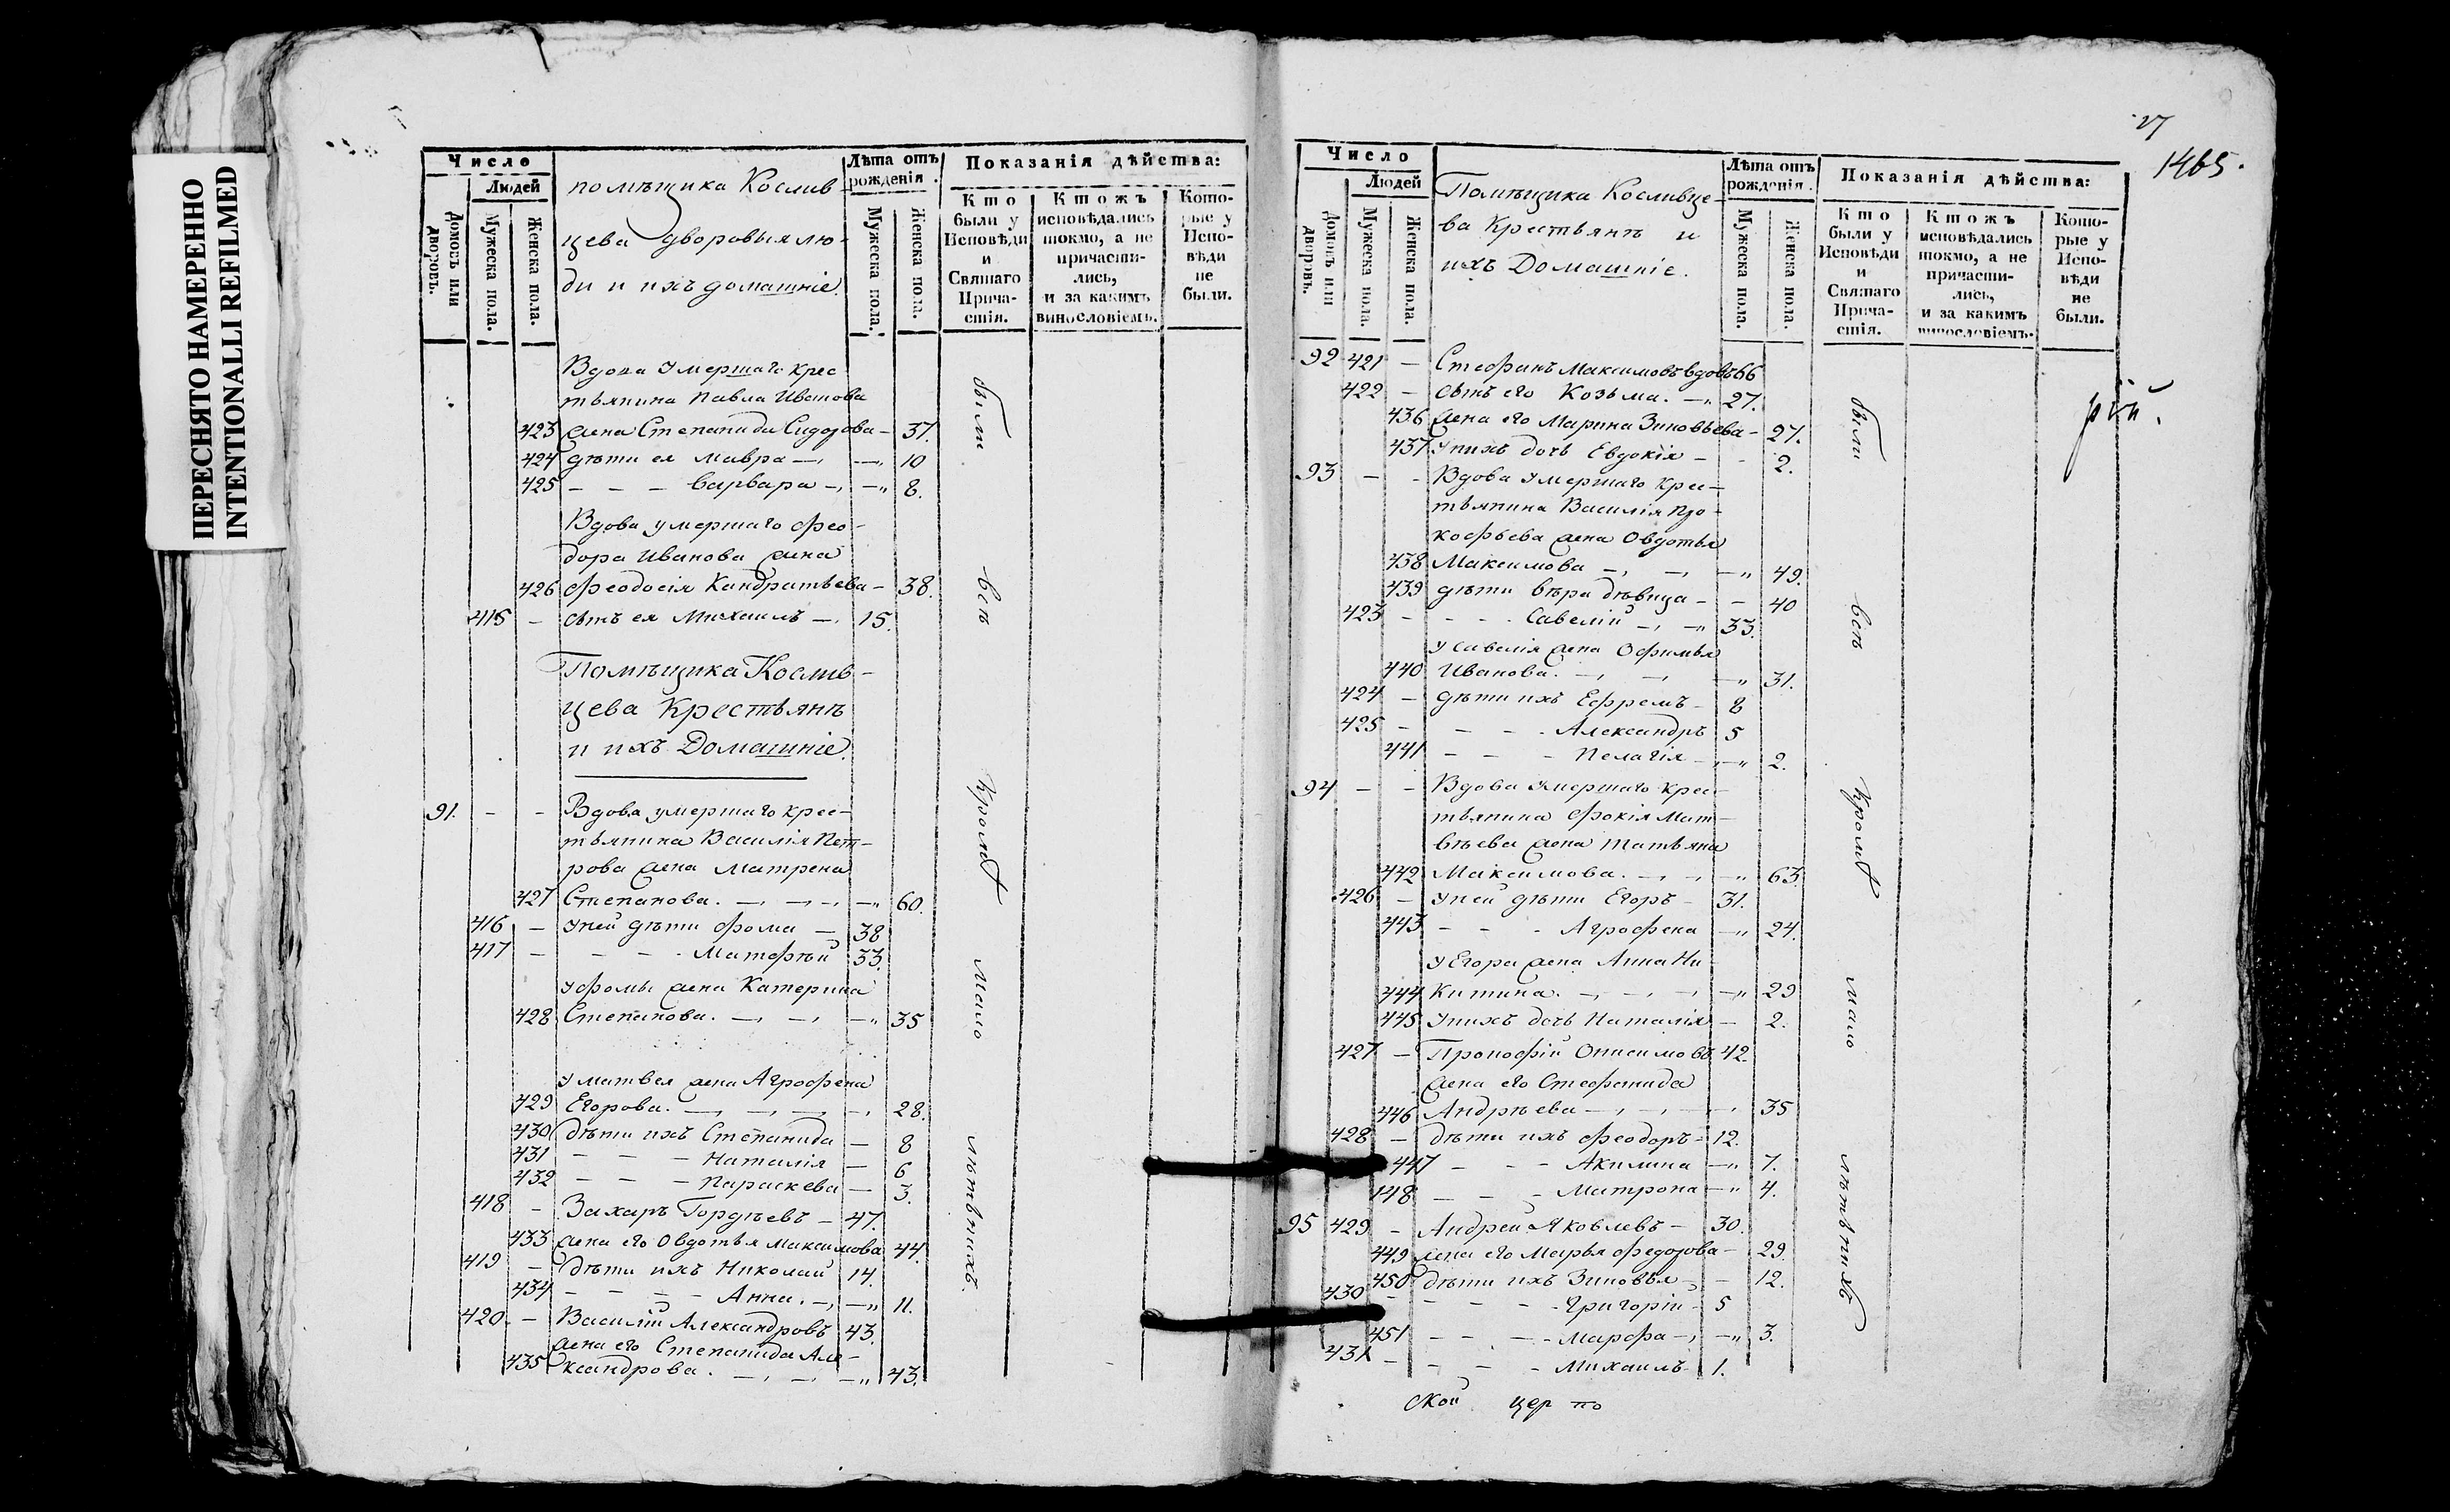 ПЕРЕСНЯТО НАМЕРЕННО
INTENTIONALLI REFILMED
Число
Людей
Домовъ или дворовъ.
Мужеска пола.
Женска пола.
помѣщика Кослив-
цева дворовыя лю-
ди и ихъ домашніе.
Лѣта отъ рожденія.
Мужеска пола.
Женска пола.
Показанія дѣйства:
Кто были у Исповѣди и Святаго Прича-стія.
Ктожъ исповѣдались токмо, а не причасти-лись, и за какимъ винословіемъ.
Кото-рые у Испо-вѣди не были.
Вдова умершаго крес
тьянина Павла Иванова
423 жена Степанида Сидорова - 37.
424 дѣти ея Мавра — — 10
425 - - - Варвара — — 8.
Вдова умершаго Фео-
дора Иванова жена
426 Феодосія Кандратьева - 38.
415 - сынъ ея Михаилъ — 15.
Помѣщика Кослив-
цева Крестьянъ
и ихъ Домашніе.
91. - - Вдова умершаго крес-
тьянина Василія Пет-
рова жена Матрена
427 Степанова. — — — 60.
416 - У ней дѣти Фома — 38
417 - - - Матфѣй 33.
У Фомы жена Катерина
428 Степанова. — — — 35
У Матвея жена Агрофена
429 Егорова. — — — 28.
430 дѣти ихъ Степанида — 8
431 - - - Наталія — 6
432 - - - Параскева — 3.
418 - Захаръ Гордѣевъ - 47.
433 жена его Овдотья Максимова 44.
419 - дѣти ихъ Николай 14.
434 - - - - Анна. — — 11.
420. - Василій Александровъ 43.
жена его Степанида Але-
435 ксандрова. — — — 43.
были
всѣ
кромѣ
мало
лѣтнихъ.
27
1465.
Число
Людей
Домовъ или дворовъ.
Мужеска пола.
Женска пола.
Помѣщика Косливце-
ва Крестьянъ и
ихъ Домашніе.
Лѣта отъ рожденія.
Мужеска пола.
Женска пола.
Показанія дѣйства:
Кто были у Исповѣди и Святаго Прича-стія.
Ктожъ исповѣдались токмо, а не причасти-лись, и за какимъ винословіемъ.
Кото-рые у Испо-вѣди не были.
92 421 - Стефанъ Максимовъ вдовъ 66
422 - сынъ его Козьма. — 27.
436 жена его Марина Зиновьева - 27.
437 У нихъ дочь Евдокія - - 2.
93 - - Вдова умершаго крес-
тьянина Василія Про-
кофьева жена Овдотья
438 Максимова — — — 49.
439 дѣти Вѣра дѣвица - - 40
423 - - - Савелій — — 33.
У Савелія жена Офимья
440 Иванова. — — — 31.
424 - дѣти ихъ Ефремъ - 8
425 - - - Александръ 5
441 - - - Пелагія — — 2.
94 - - Вдова умершаго крес-
тьянина Фокія Мат-
вѣева жена Татьяна
442 Максимова. — — — 63.
426 - У ней дѣти Егоръ - 31.
443 - - - Агрофена — 24.
У Егора жена Анна Ни
444 Китина. — — — 29
445 У нихъ дочь Наталія — 2.
427 - Прокофій Онисимовъ 42.
жена его Стефанида
446 Андрѣева — — — 35
428 - дѣти ихъ Феодоръ - 12.
447 - - - Акилина — 7.
148 - - - Матрона — 4.
95 429 - Андрей Яковлевъ - 30.
449 жена его Марья Федорова - 29.
450 дѣти ихъ Зиновья - - 12.
430 - - - - Григорій - 5
451 - - - Марфа — — 3.
431 - - - - Михаилъ 1.
были
всѣ
кромѣ
мало
лѣтнихъ
рій.
ской цер по